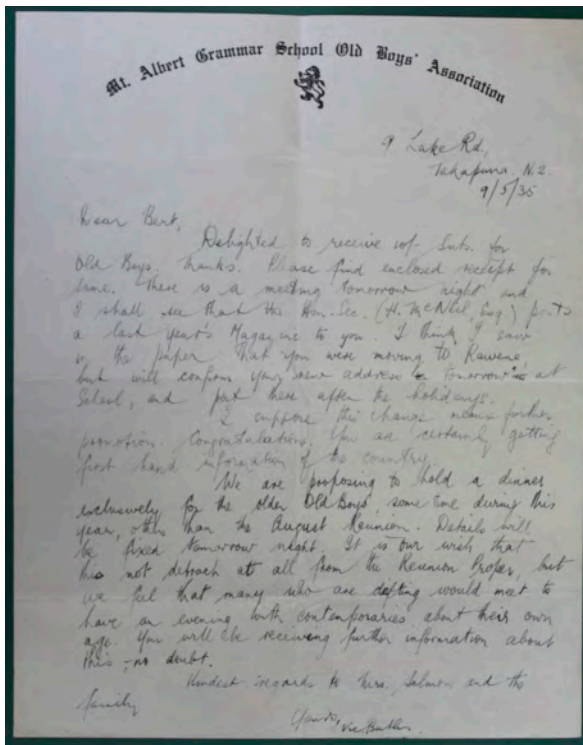 Mt. Albert Grammar School Old Boys' Association
9 Lake Rd.,
Takapuna. N.2.
9/5/35
Dear Bert,
Delighted to receive Subs. for
Old Boys. Thanks. Please find enclosed receipt for
same. There is a meeting tomorrow night and
I shall see that the Hon. Sec. (H. McNeil, Esq.) posts
a last year's Magazine to you. I think I saw
in the paper that you were moving to Rawene,
but will confirm your new address tomorrow at
School, and post there after the holidays.
I suppose this change means further
promotion. Congratulations. You are certainly getting
first hand information of the country.
We are proposing to hold a dinner
exclusively for the older Old Boys, some time during this
year, other than the August Reunion. Details will
be fixed tomorrow night. It is our wish that
this not detract at all from the Reunion Proper, but
we feel that many who are drifting would meet to
have an evening with contemporaries about their own
age. You will be receiving further information about
this - no doubt.
Kindest regards to Mrs. Salmon and the
family
Yours,
Vic Butler